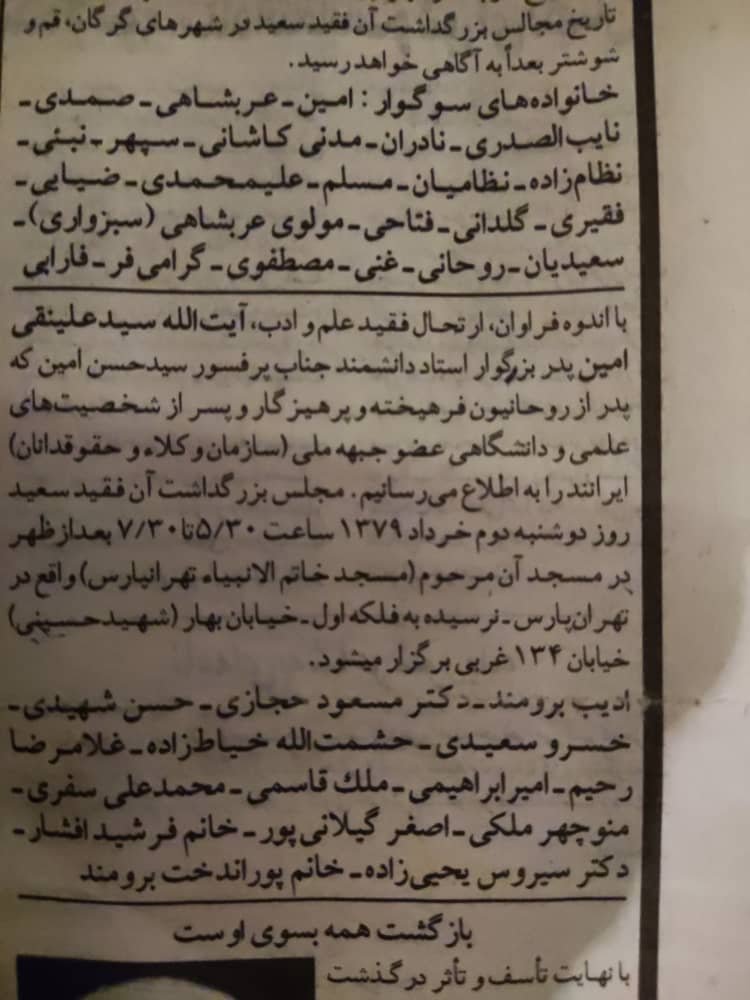 تاریخ مجالس بزرگداشت آن فقید سعید در شهرهای گرگان، قم و
شوشتر بعداً به آگاهی خواهد رسید.
خانواده‌های سوگوار: امین ـ عربشاهی ـ صمدی ـ
نایب‌الصدری ـ نادران ـ مدنی کاشانی ـ سپهر ـ نبئی ـ
نظام‌زاده ـ نظامیان ـ مسلم ـ علیمحمدی ـ ضیایی ـ
فقیری ـ گلدانی ـ فتاحی ـ مولوی عربشاهی (سبزواری) ـ
سعیدیان ـ روحانی ـ غنی ـ مصطفوی ـ گرامی فر ـ فارابی
با اندوه فراوان، ارتحال فقید علم و ادب، آیت‌الله سید علینقی
امین پدر بزرگوار استاد دانشمند جناب پرفسور سیدحسن امین که
پدر از روحانیون فرهیخته و پرهیزگار و پسر از شخصیت‌های
علمی و دانشگاهی عضو جبهه ملی (سازمان وکلاء و حقوقدانان)
ایرانند را به اطلاع می‌رسانیم. مجلس بزرگداشت آن فقید سعید
روز دوشنبه دوم خرداد ۱۳۷۹ ساعت ۵/۳۰ تا ۷/۳۰ بعدازظهر
در مسجد آن مرحوم (مسجد خاتم الانبیاء تهرانپارس) واقع در
تهران‌پارس ـ نرسیده به فلکه اول ـ خیابان بهار (شهید حسینی)
خیابان ۱۳۴ غربی برگزار میشود.
ادیب برومند ـ دکتر مسعود حجازی ـ حسن شهیدی ـ
خسرو سعیدی ـ حشمت‌الله خیاط‌زاده ـ غلامرضا
رحیم ـ امیرابراهیمی ـ ملك قاسمی ـ محمدعلی سفری ـ
منوچهر ملکی ـ اصغر گیلانی پور ـ خانم فرشید افشار ـ
دکتر سیروس یحیی‌زاده ـ خانم پوراندخت برومند
بازگشت همه بسوی اوست
با نهایت تأسف و تأثر درگذشت